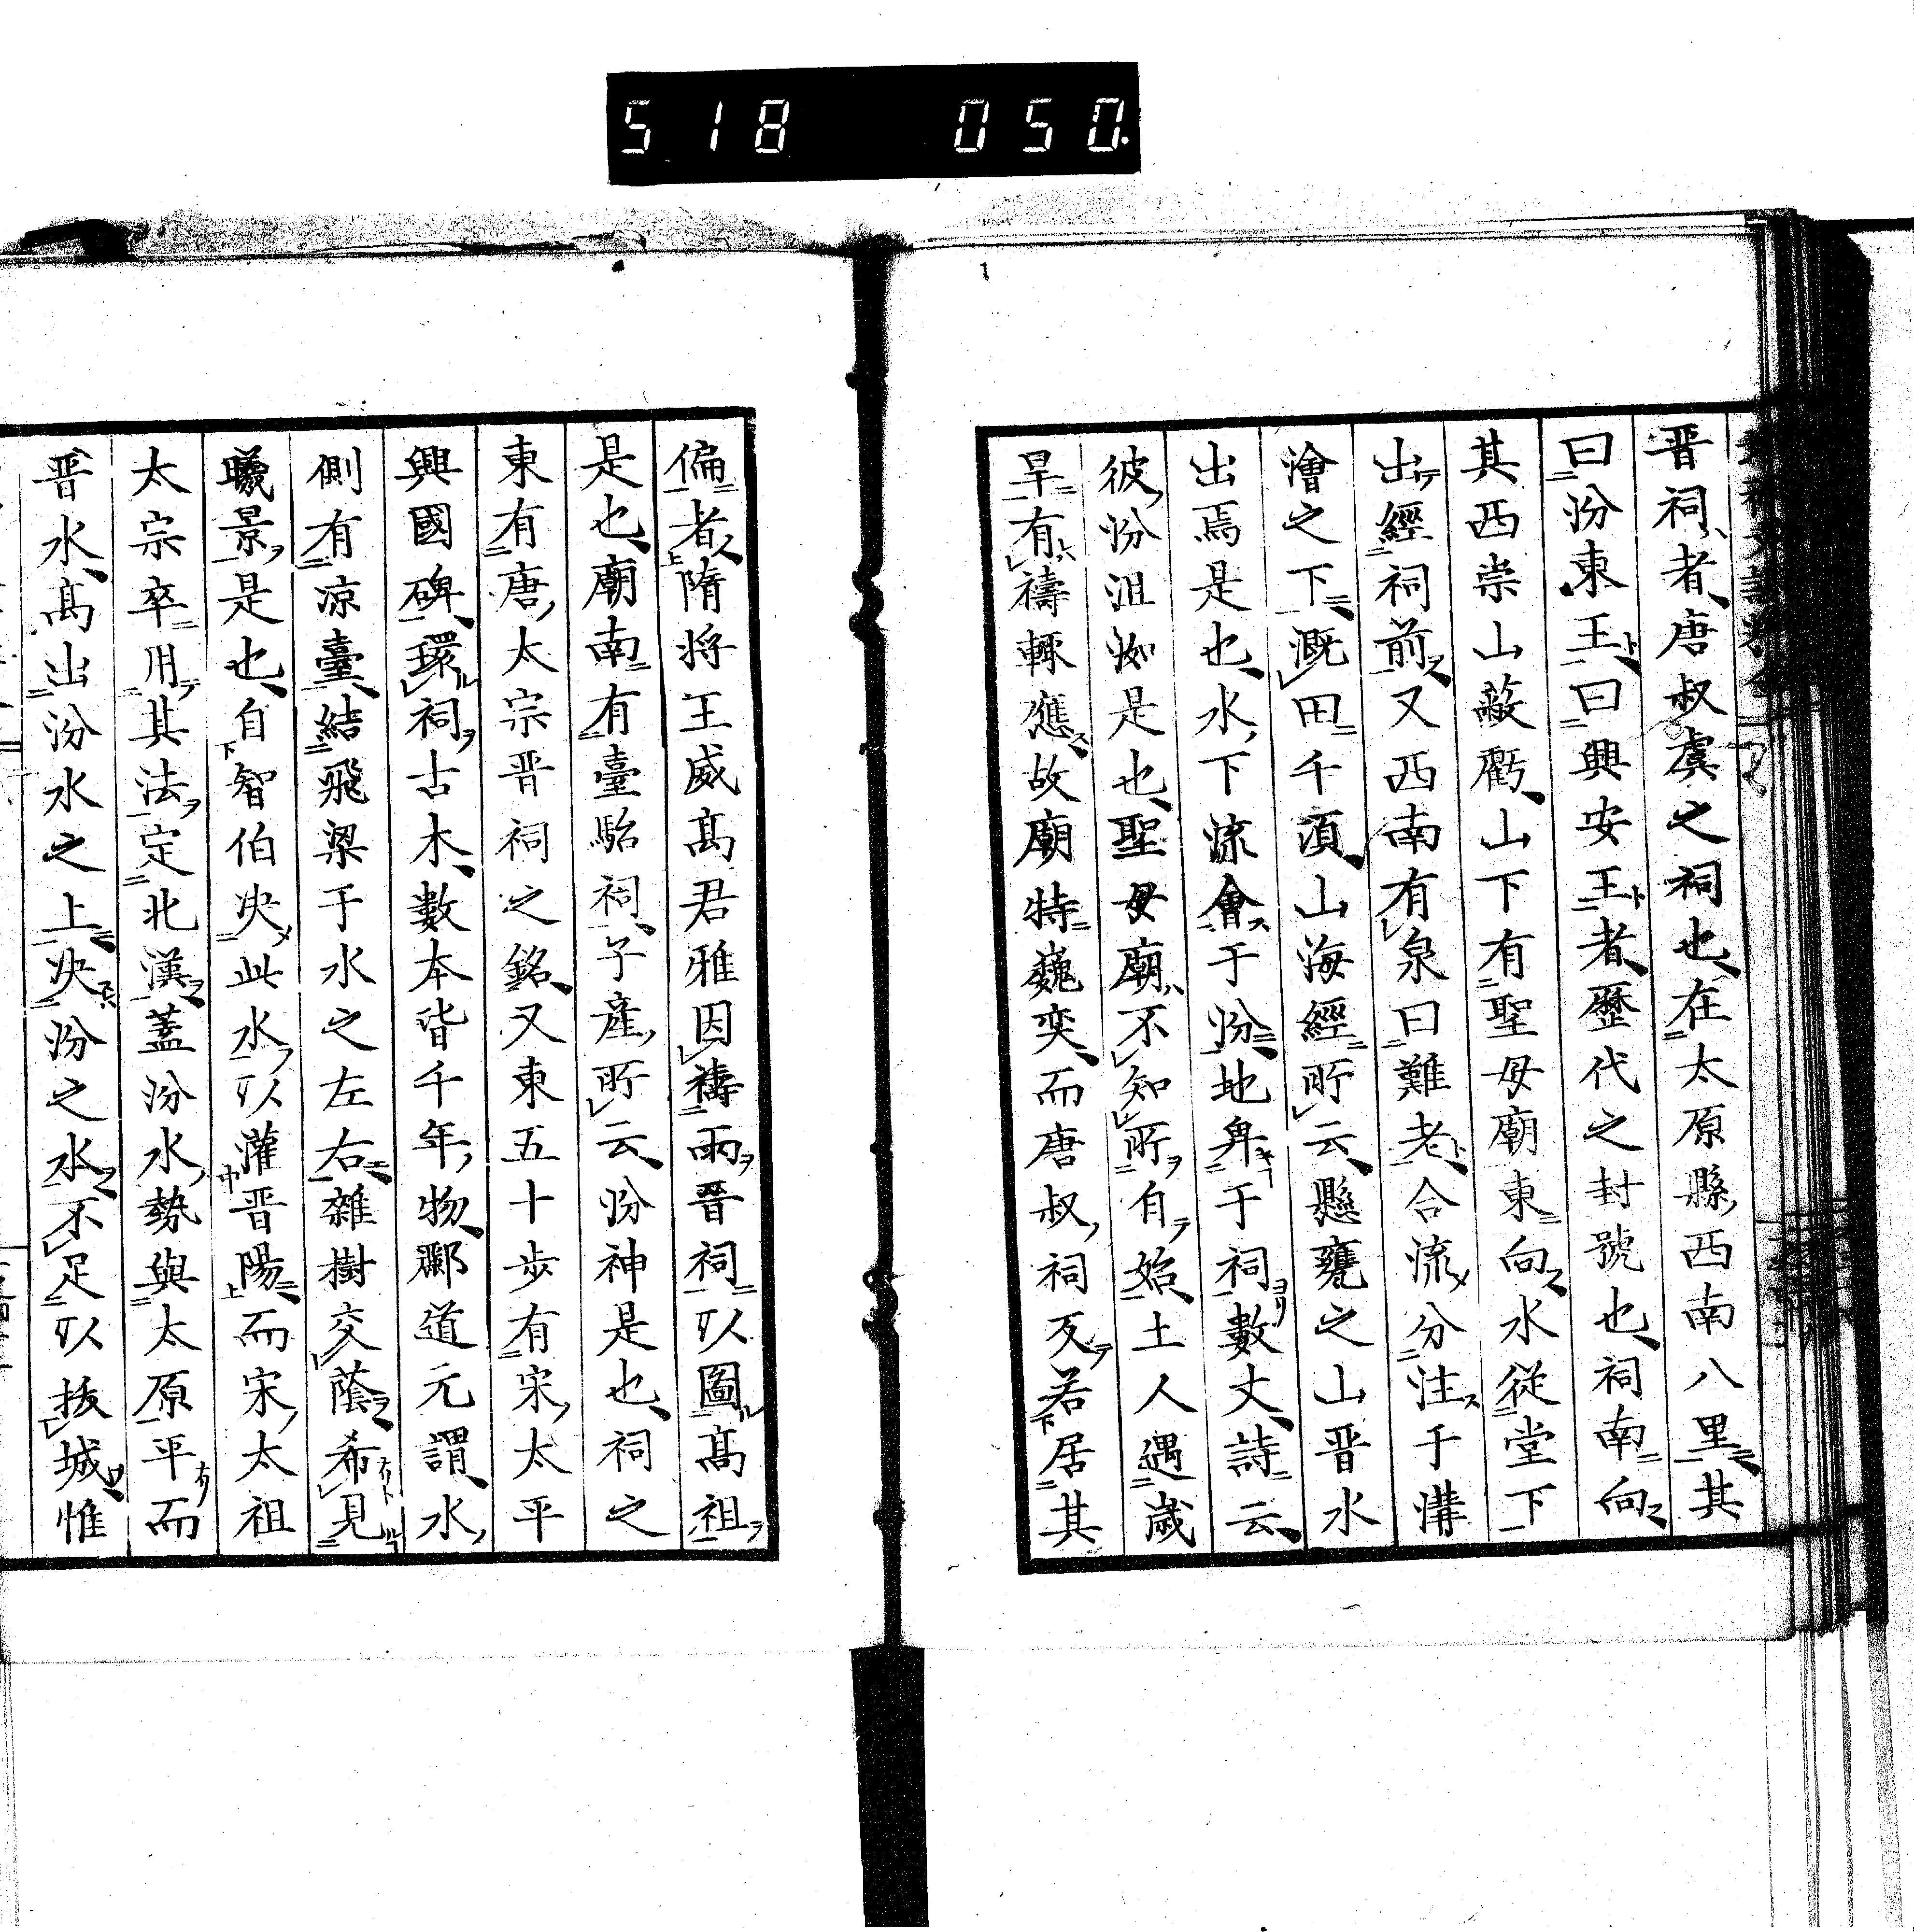 518 050.
晋祠者唐叔虞之祠也在太原縣西南八里其
曰汾東王曰興安王者歷代之封號也祠南向
其西崇山蔽虧山下有聖母廟東向水從堂下
出經祠前又西南有泉曰難老合流分注于溝
澮之下溉田千頃山海經所云懸甕之山晋水
出焉是也水下流會于汾地卑于祠數丈詩云
彼汾沮洳是也聖母廟不知所自始土人遇歲
旱有禱輒應故廟特巍奕而唐叔祠反若居其
偏者隋将王威高君雅因禱雨晉祠以圖高祖
是也廟南有臺駘祠子産所云汾神是也祠之
東有唐太宗晋祠之銘又東五十步有宋太平
興國碑環祠古木數本皆千年物酈道元謂水
側有凉臺結飛梁于水之左右雜樹交蔭希見
曦景是也自智伯决此水以灌晋陽而宋太祖
太宗卒用其法定北漢蓋汾水勢與太原平而
晋水高出汾水之上决汾之水不足以拔城惟